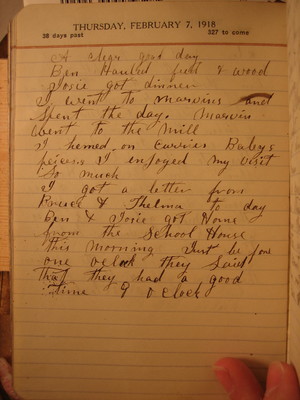 THURSDAY, FEBRUARY 7, 1918
38 days past 327 to come
A clear good day
Ben Hauled feed & wood
Josie got dinner
I went to marvins and
Spent the day. Marvin
went to the mill
I hemed on Babeys
I enjoyed my visit
So much
I got a letter from
& Thelma to day
Ben & Josie got Home
from the School House
this morning Just be for
one oclock they Said
that they had a good
time 9 O Clock